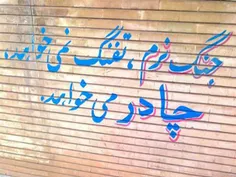 جنگ نرم، تفنگ نمی خواهد،
چادر می خواهد.